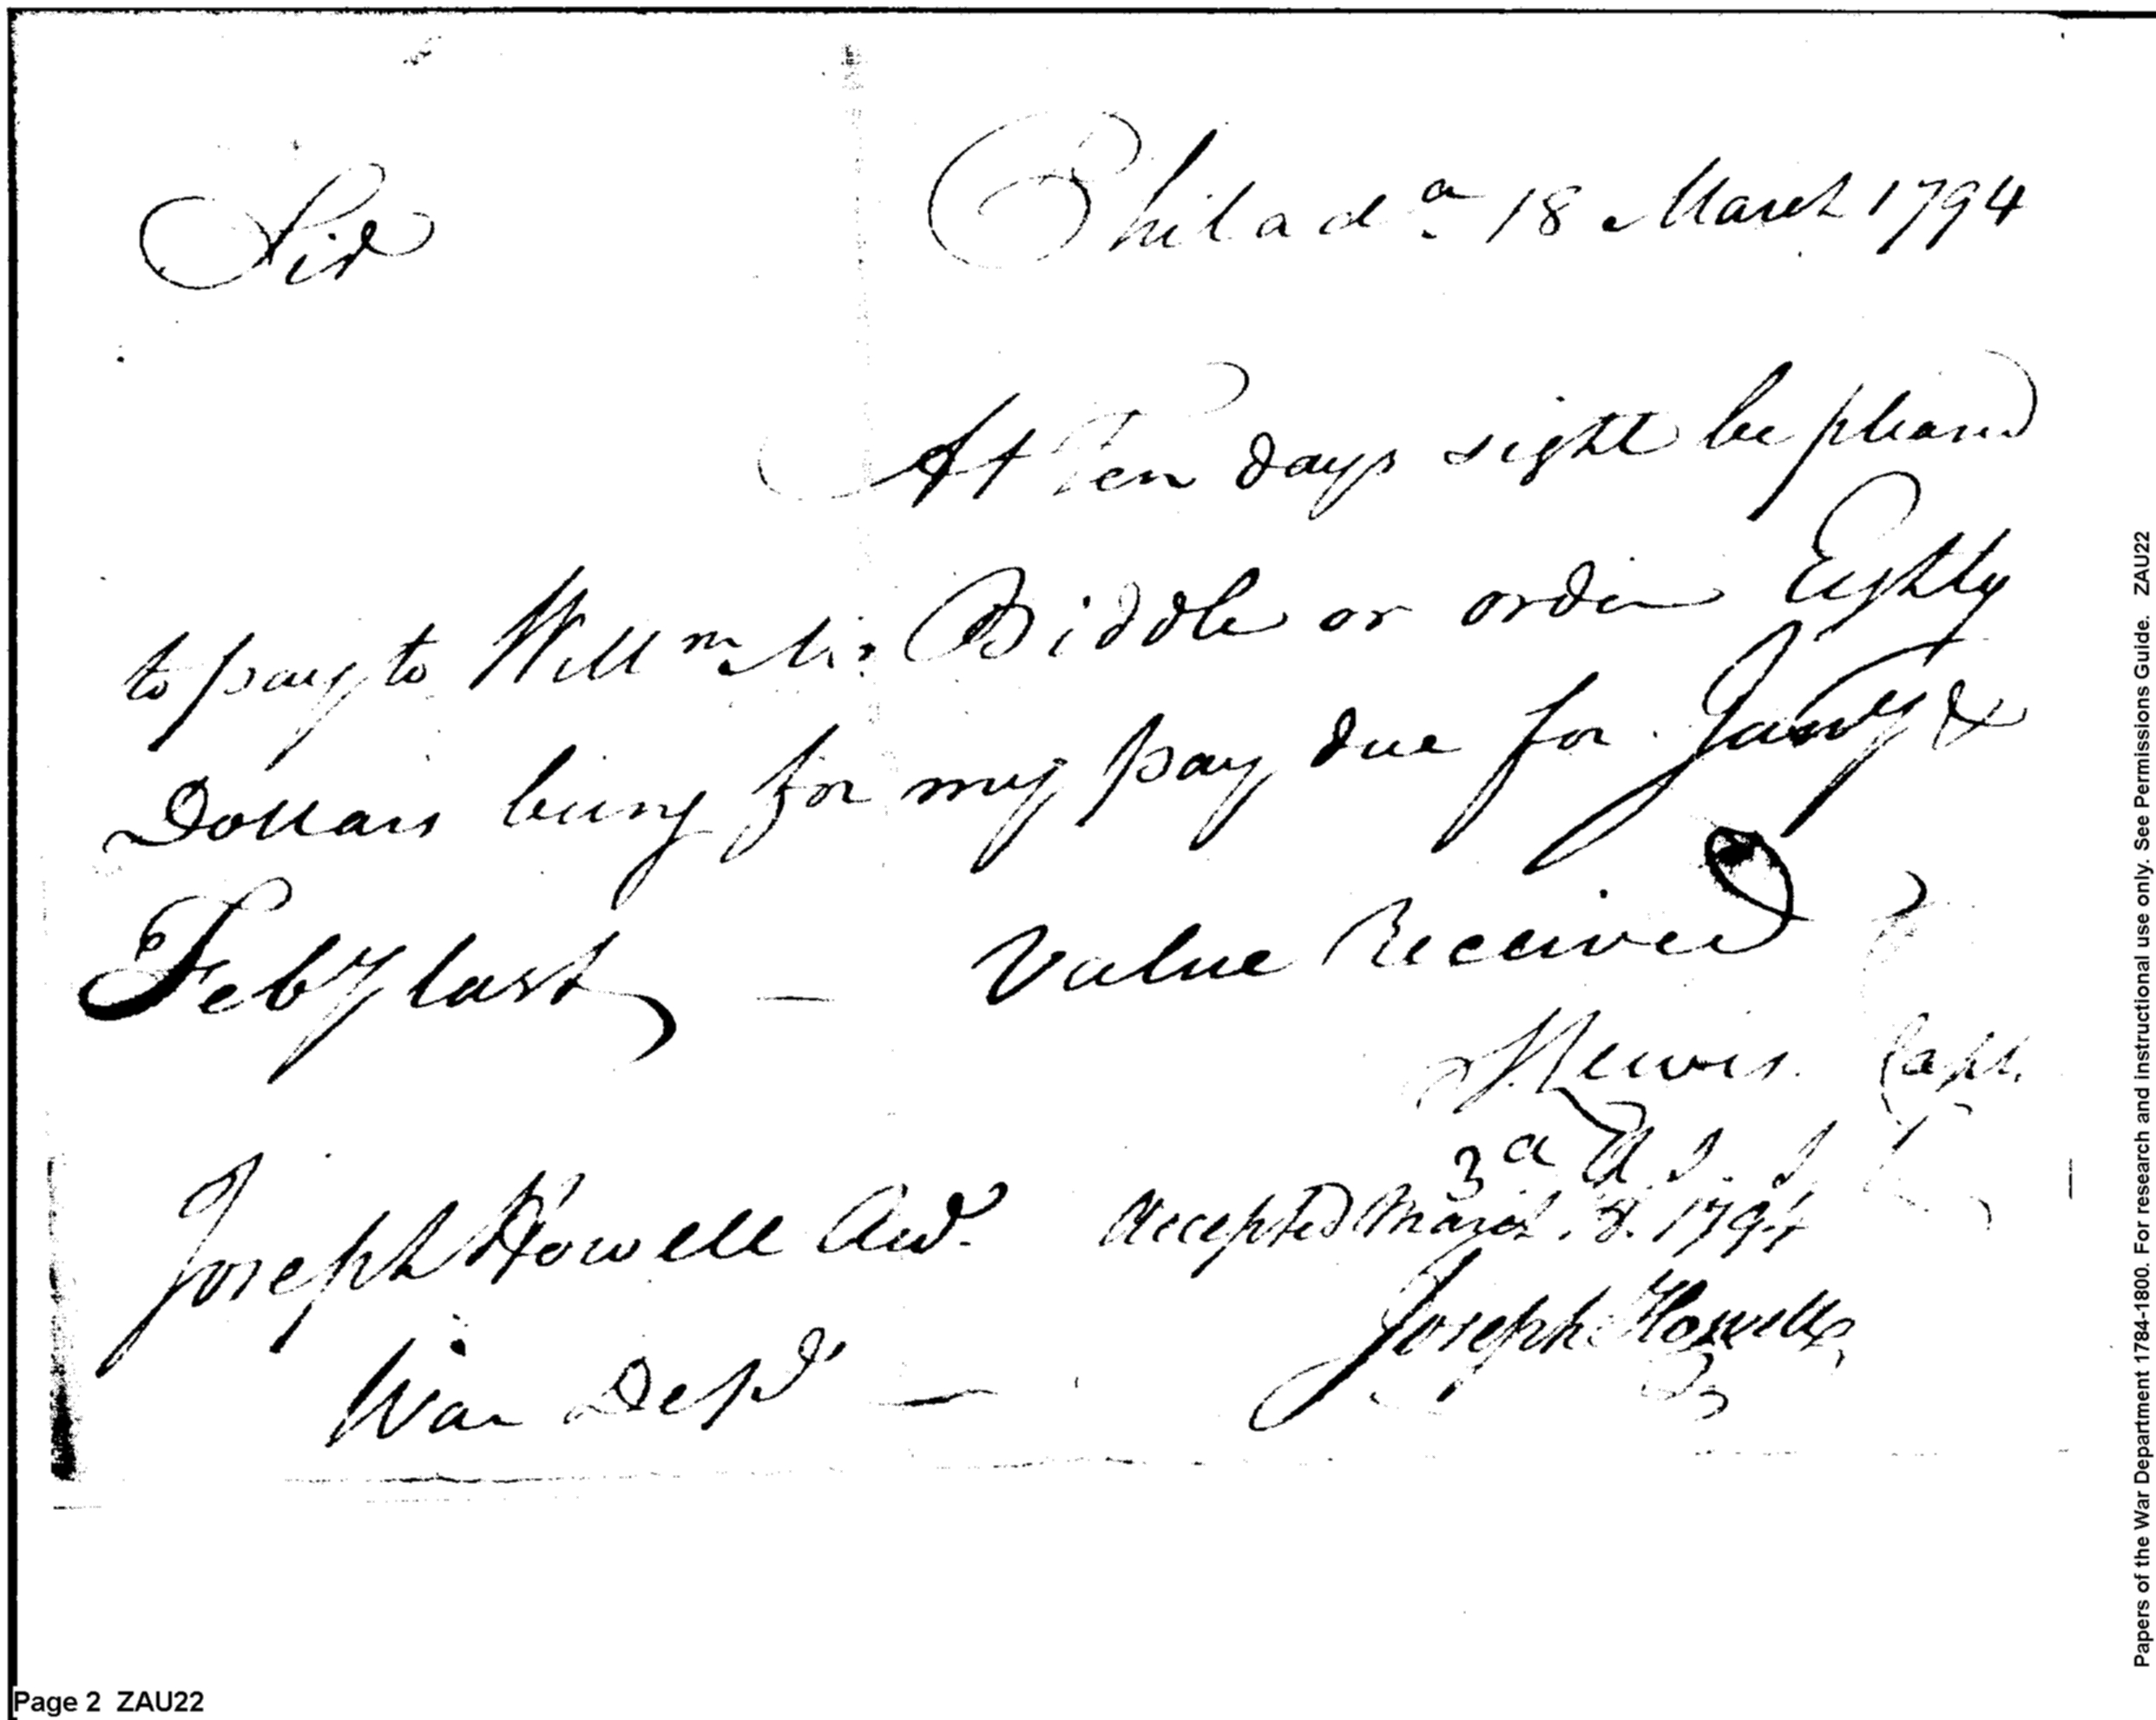 Sir
Philad.a 18 March 1794
At Ten days sight be pleased
to pay to Willm Biddle or order Eighty
Dollars being for my pay due for Jany &
Feby last — Value Received
Lewis Capt.
3d U. S.
Joseph Howell Acct. accepted March 1794
War Dept — Joseph Howell
Page 2 ZAU22
Papers of the War Department 1784-1800. For research and instructional use only. See Permissions Guide. ZAU22